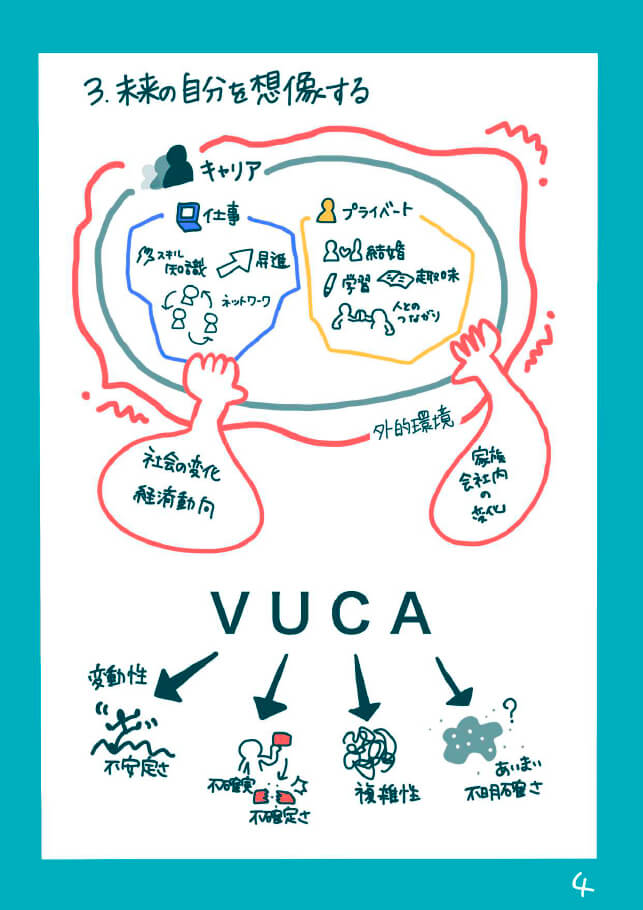 3. 未来の自分を想像する
キャリア
仕事
スキル
知識
昇進
ネットワーク
プライベート
結婚
学習
趣味
人との
つながり
外的環境
社会の変化
経済動向
家族
会社内
の
変化
VUCA
変動性
不安定さ
不確実
不確定さ
複雑性
?
あいまい
不明確さ
4